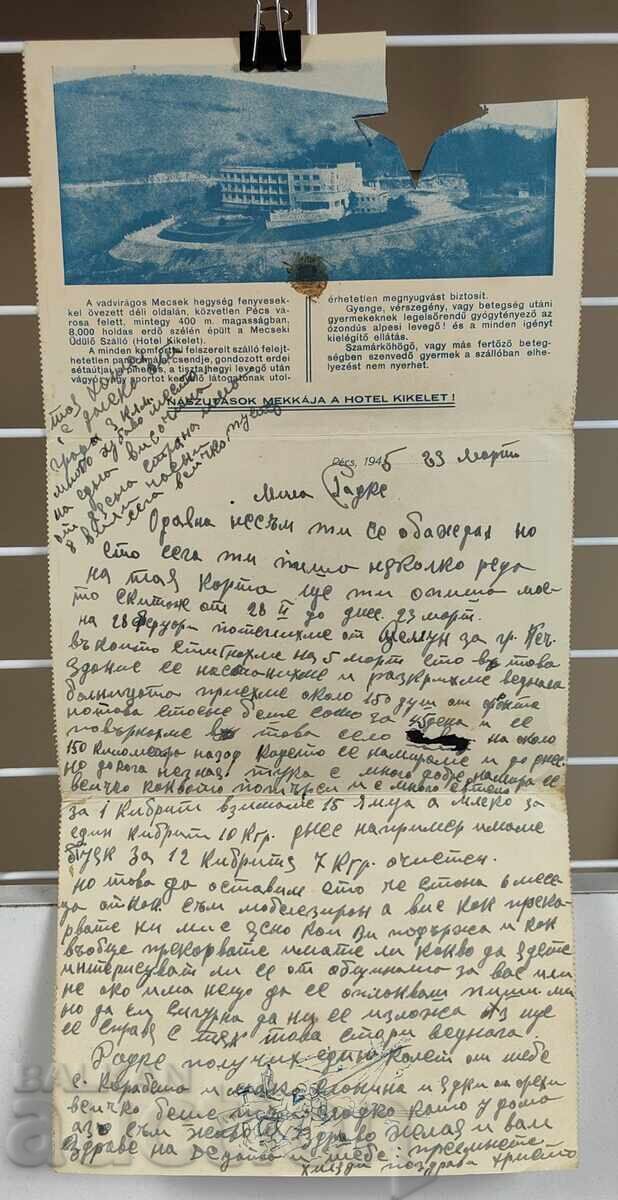 A vadvirágos Mecsek hegység fenyvesek-
kel övezett déli oldalán, közvetlen Pécs vá-
rosa felett, mintegy 400 m. magasságban,
8.000 holdas erdő szélén épült a Mecseki
Üdülő Szálló (Hotel Kikelet).
A minden komforttal felszerelt szálló felejt-
hetetlen
gondozott erdei
sétautjai
a tisztahegyi levegő után
vágyó
sportot kedvelő látogatónak utol-
érhetetlen megnyugvást biztosit.
Gyenge, vérszegény, vagy betegség utáni
gyermekeknek legelsőrendű gyógytényező az
ózondús alpesi levegő! és a minden igényt
kielégítő ellátás.
Szamárköhögő, vagy más fertőző beteg-
ségben szenvedő gyermek a szállóban elhe-
lyezést nem nyerhet.
NÁSZUTASOK MEKKÁJA A HOTEL KIKELET!
тоя хотел
е далеко от
града 3 клм.
много хубаво место
на една височина
всичко пусто
Pécs, 1945 23 Март
Мила Радке
Одавна несъм ти се обаждал но
ето сега ти пиша неколко реда
на тая карта ще ти опиша мое-
то скитане от 28 II до днес 23 март.
на 28 февуари потеглихме от Земун за гр. Печ.
в който стигнахме на 5 март ето в това
здание се настанихме и разкрихме веднага
болницата приехме около 150 души от фронта
но това стоене беше само за 4 дена и се
повърнахме в това село на около
150 километра назад където се намираме и до днес.
но докога незная тука е много добре намира се
всичко каквото потърси и е много ефтено
за 1 кибрит взимаме 15 яйца а млеко за
един кибрит 10 кгр. днес например имаме
за 12 кибрита 7 кгр. очистен.
но това да оставим ето че стана 6 месе-
ца откак съм мобелезиран а вие как прека-
рвате ни ми е ясно кой ви подържа и как
въобще прекарвате имате ли какво да ядете
интересуват ли се от общината за вас или
не ако има нещо да се оплакваш пиши ми
но да си сигурна да ни се изложа аз ще
се справя с тях това стори веднага.
Радке получих един колет от тебе
с и сланина и ядки от орехи
всичко беше сладко като у дома
аз съм жив и здраво желая и вам
здраве на децата и тебе: приемете
поздрава Христо